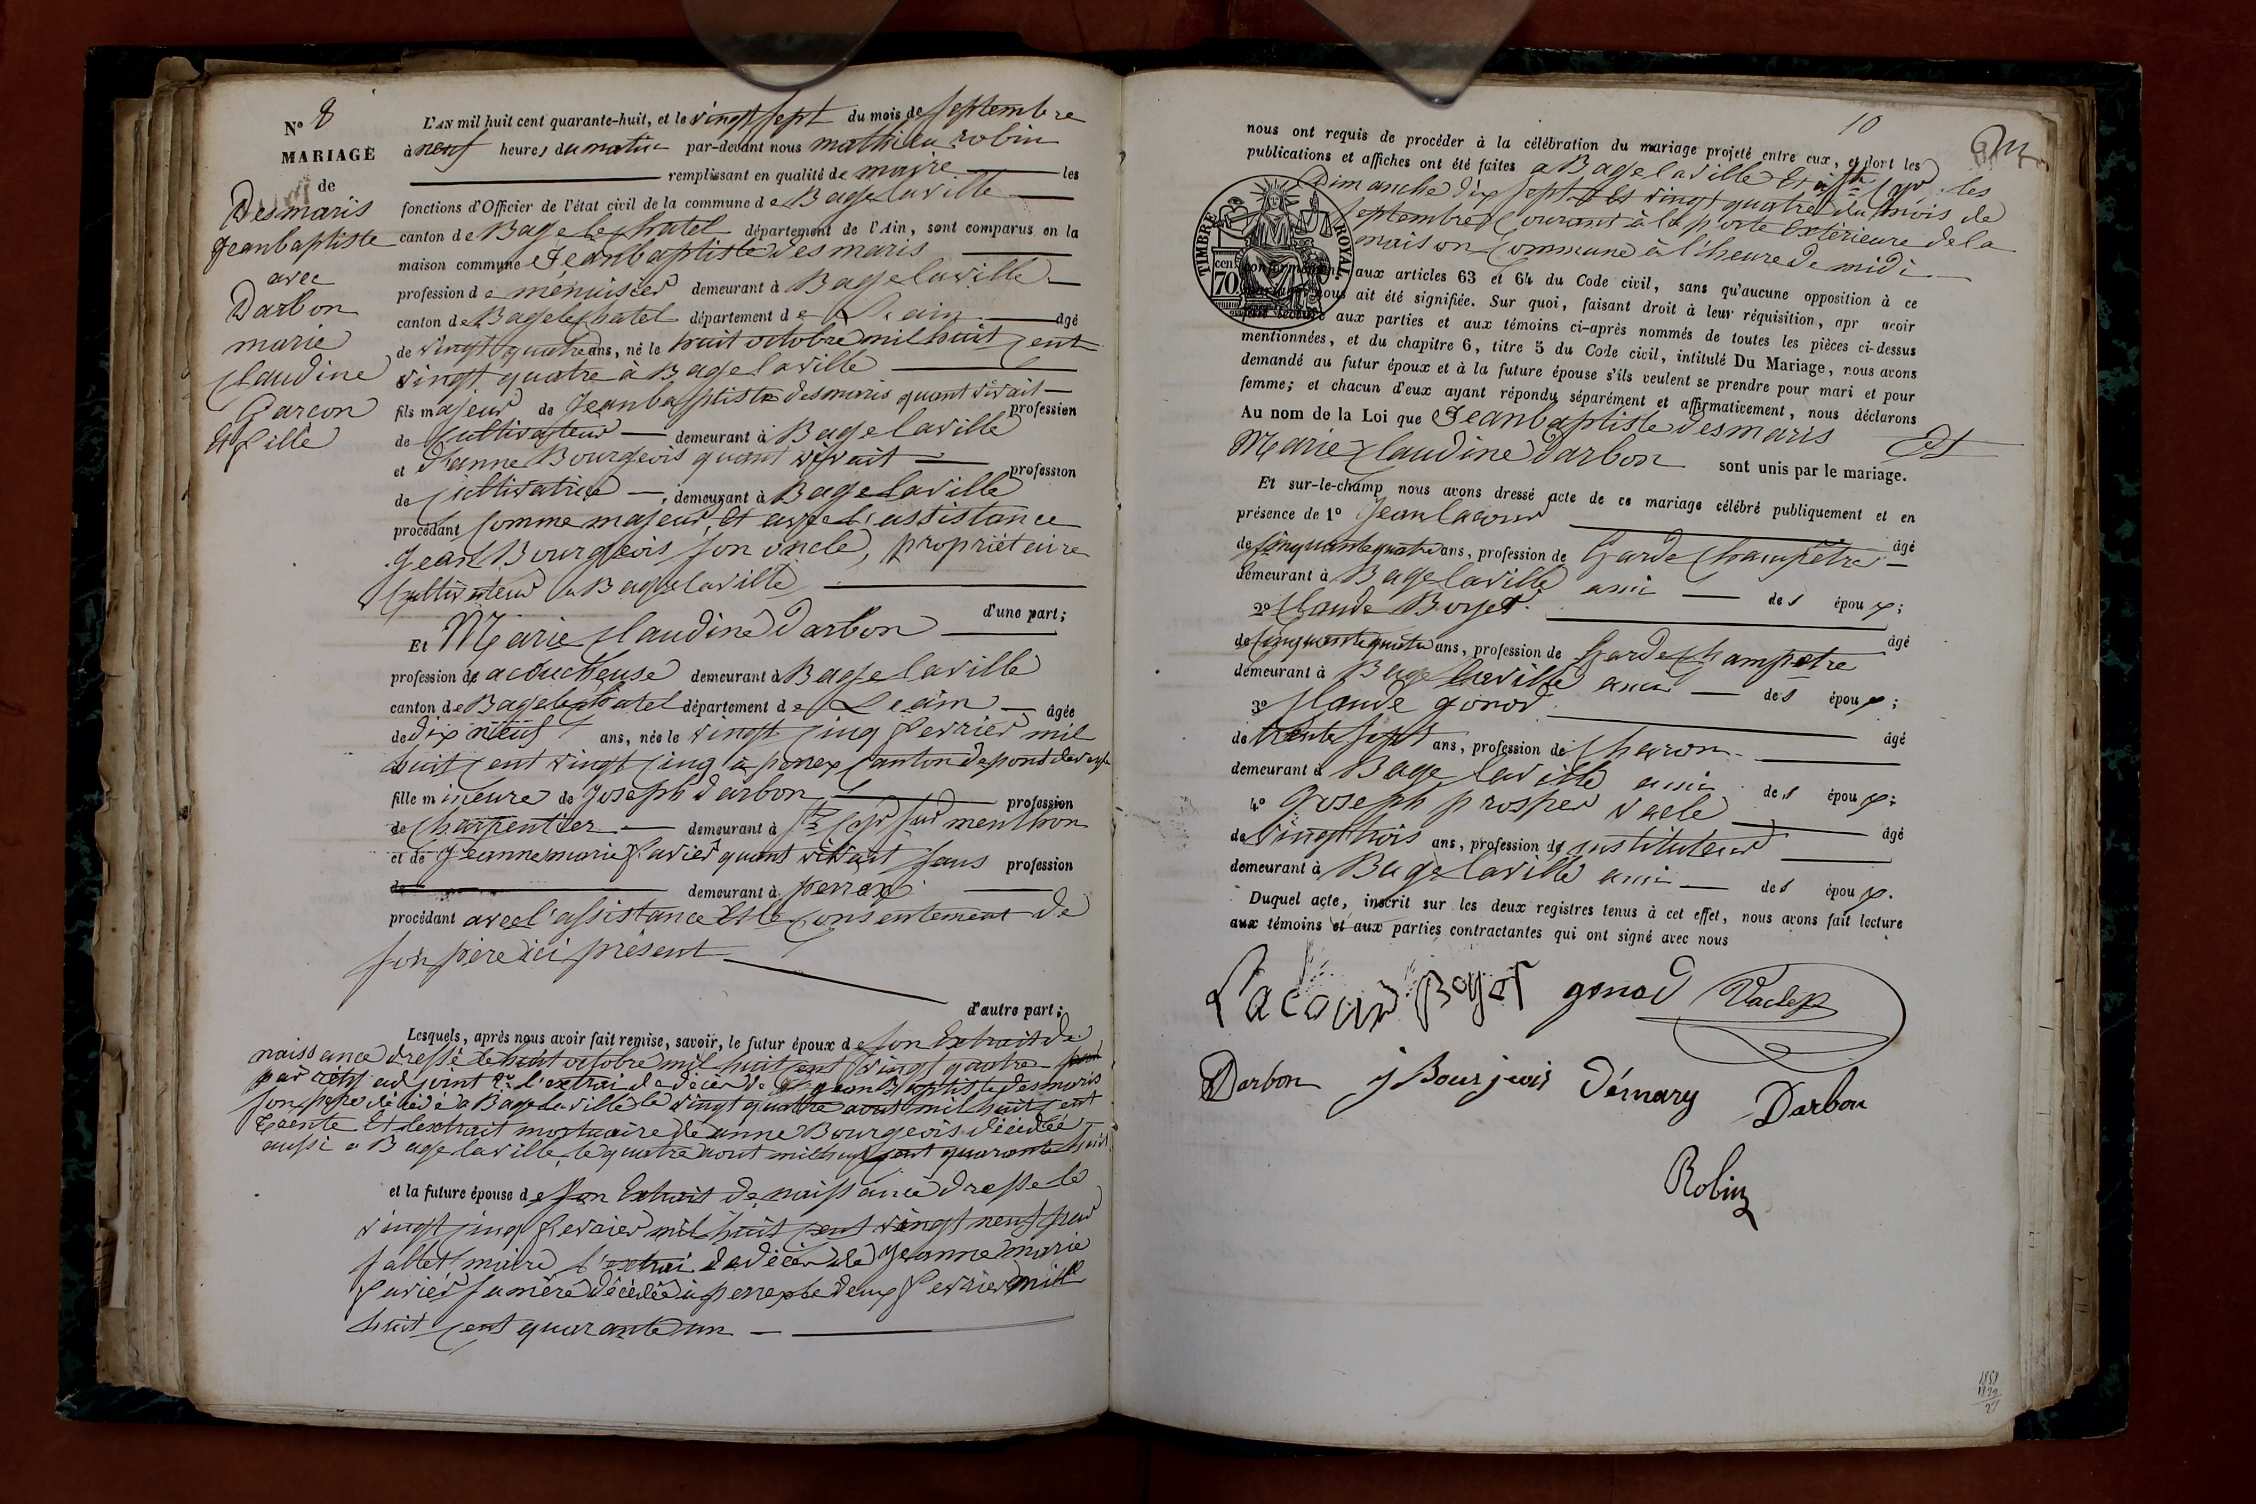 N° 8
MARIAGE
de
Desmaris
Jeanbaptiste
avec
Darbon
marie
Claudine
Garcon
et fille
L'AN mil huit cent quarante-huit, et le vingt sept du mois de septembre
à neuf heures du matin par-devant nous mathieu robin
remplissant en qualité de maire les
fonctions d'Officier de l'état civil de la commune de Bagé laville
canton de Bagé le chatel département de l'Ain, sont comparus en la
maison commune Jeanbaptiste desmaris
profession de menuisier demeurant à Bagé laville
canton de Bagé lechatel département de L'ain agé
de vingt quatre ans, né le huit octobre mil huit cent
vingt quatre à Bagé laville
fils majeur de Jeanbaptiste desmaris quant vivait profession
de cultivateur demeurant à Bagé laville
et d'anne Bourgeois quant vivait profession
de cultivatrice, demeurant à Bagé laville
procédant comme majeur, et avec l'assistance
Jean Bourgeois son oncle, propriétaire
Cultivateur à Bagé laville
d'une part;
Et Marie Claudine Darbon
profession de acoucheuse demeurant à Bagé laville
canton de Bagé lechatel département de L'ain âgée
de dix neuf ans, née le vingt cinq fevrier mil
huit cent vingt cinq à perrex canton de pont de veyle
fille mineure de Joseph darbon profession
de charpentier demeurant à St Cyr sur menthon
et de Jeanne marie favier quant vivait sans profession
demeurant à perrex
procédant avec l'assistance et le consentement de
son père ici présent
d'autre part;
Lesquels, après nous avoir fait remise, savoir, le futur époux de son Extrait de
naissance dressé le huit octobre mil huit cent vingt quatre
par adjoint l'extrai de décès de Jeanbaptiste desmaris
son père décédé à Bagé laville le vingt quatre aout mil huit cent
trente et l'extrait mortuaire de anne Bourgeois décédée
aussi a Bagé laville le quatre aout mil huit cent quarante huit
et la future épouse de son Extrait de naissance dressé le
vingt cinq fevrier mil huit cent vingt neuf par
fallet maire l'extrai de décès de Jeanne marie
favier sa mère décédée à perrex le deux fevrier mill
huit cent quarante un
10
nous ont requis de procéder à la célébration du mariage projeté entre eux, et dont les
publications et affiches ont été faites a Bagé laville Et à St Cyr les
Dimanche dix sept et vingt quatre du mois de
septembre courant à la porte Extérieure de la
maison commune à l'heure de midi
TIMBRE ROYAL
70 cent
conformément aux articles 63 et 64 du Code civil, sans qu'aucune opposition à ce
mariage nous ait été signifiée. Sur quoi, faisant droit à leur réquisition, apr avoir
fait lecture aux parties et aux témoins ci-après nommés de toutes les pièces ci-dessus
mentionnées, et du chapitre 6, titre 5 du Code civil, intitulé Du Mariage, nous avons
demandé au futur époux et à la future épouse s'ils veulent se prendre pour mari et pour
femme; et chacun d'eux ayant répondu séparément et affirmativement, nous déclarons
Au nom de la Loi que Jeanbaptiste desmaris Et
Marie Claudine darbon sont unis par le mariage.
Et sur-le-champ nous avons dressé acte de ce mariage célébré publiquement et en
présence de 1° Jean lacour âgé
de cinquante quatre ans, profession de Garde Champêtre
demeurant à Bagé laville ami des époux;
2° Claude Boyet âgé
de cinquante quatre ans, profession de Garde Champetre
demeurant à Bagé laville ami des époux;
3° Claude gonod âgé
de trente sept ans, profession de charon
demeurant à Bagé laville ami des époux;
4° Joseph prosper vacle âgé
de vingt trois ans, profession de instituteur
demeurant à Bagé laville ami des époux.
Duquel acte, inscrit sur les deux registres tenus à cet effet, nous avons fait lecture
aux témoins et aux parties contractantes qui ont signé avec nous
Lacour Boyet gonod Vacle
Darbon j Bourjois Démary Darbon
Robin